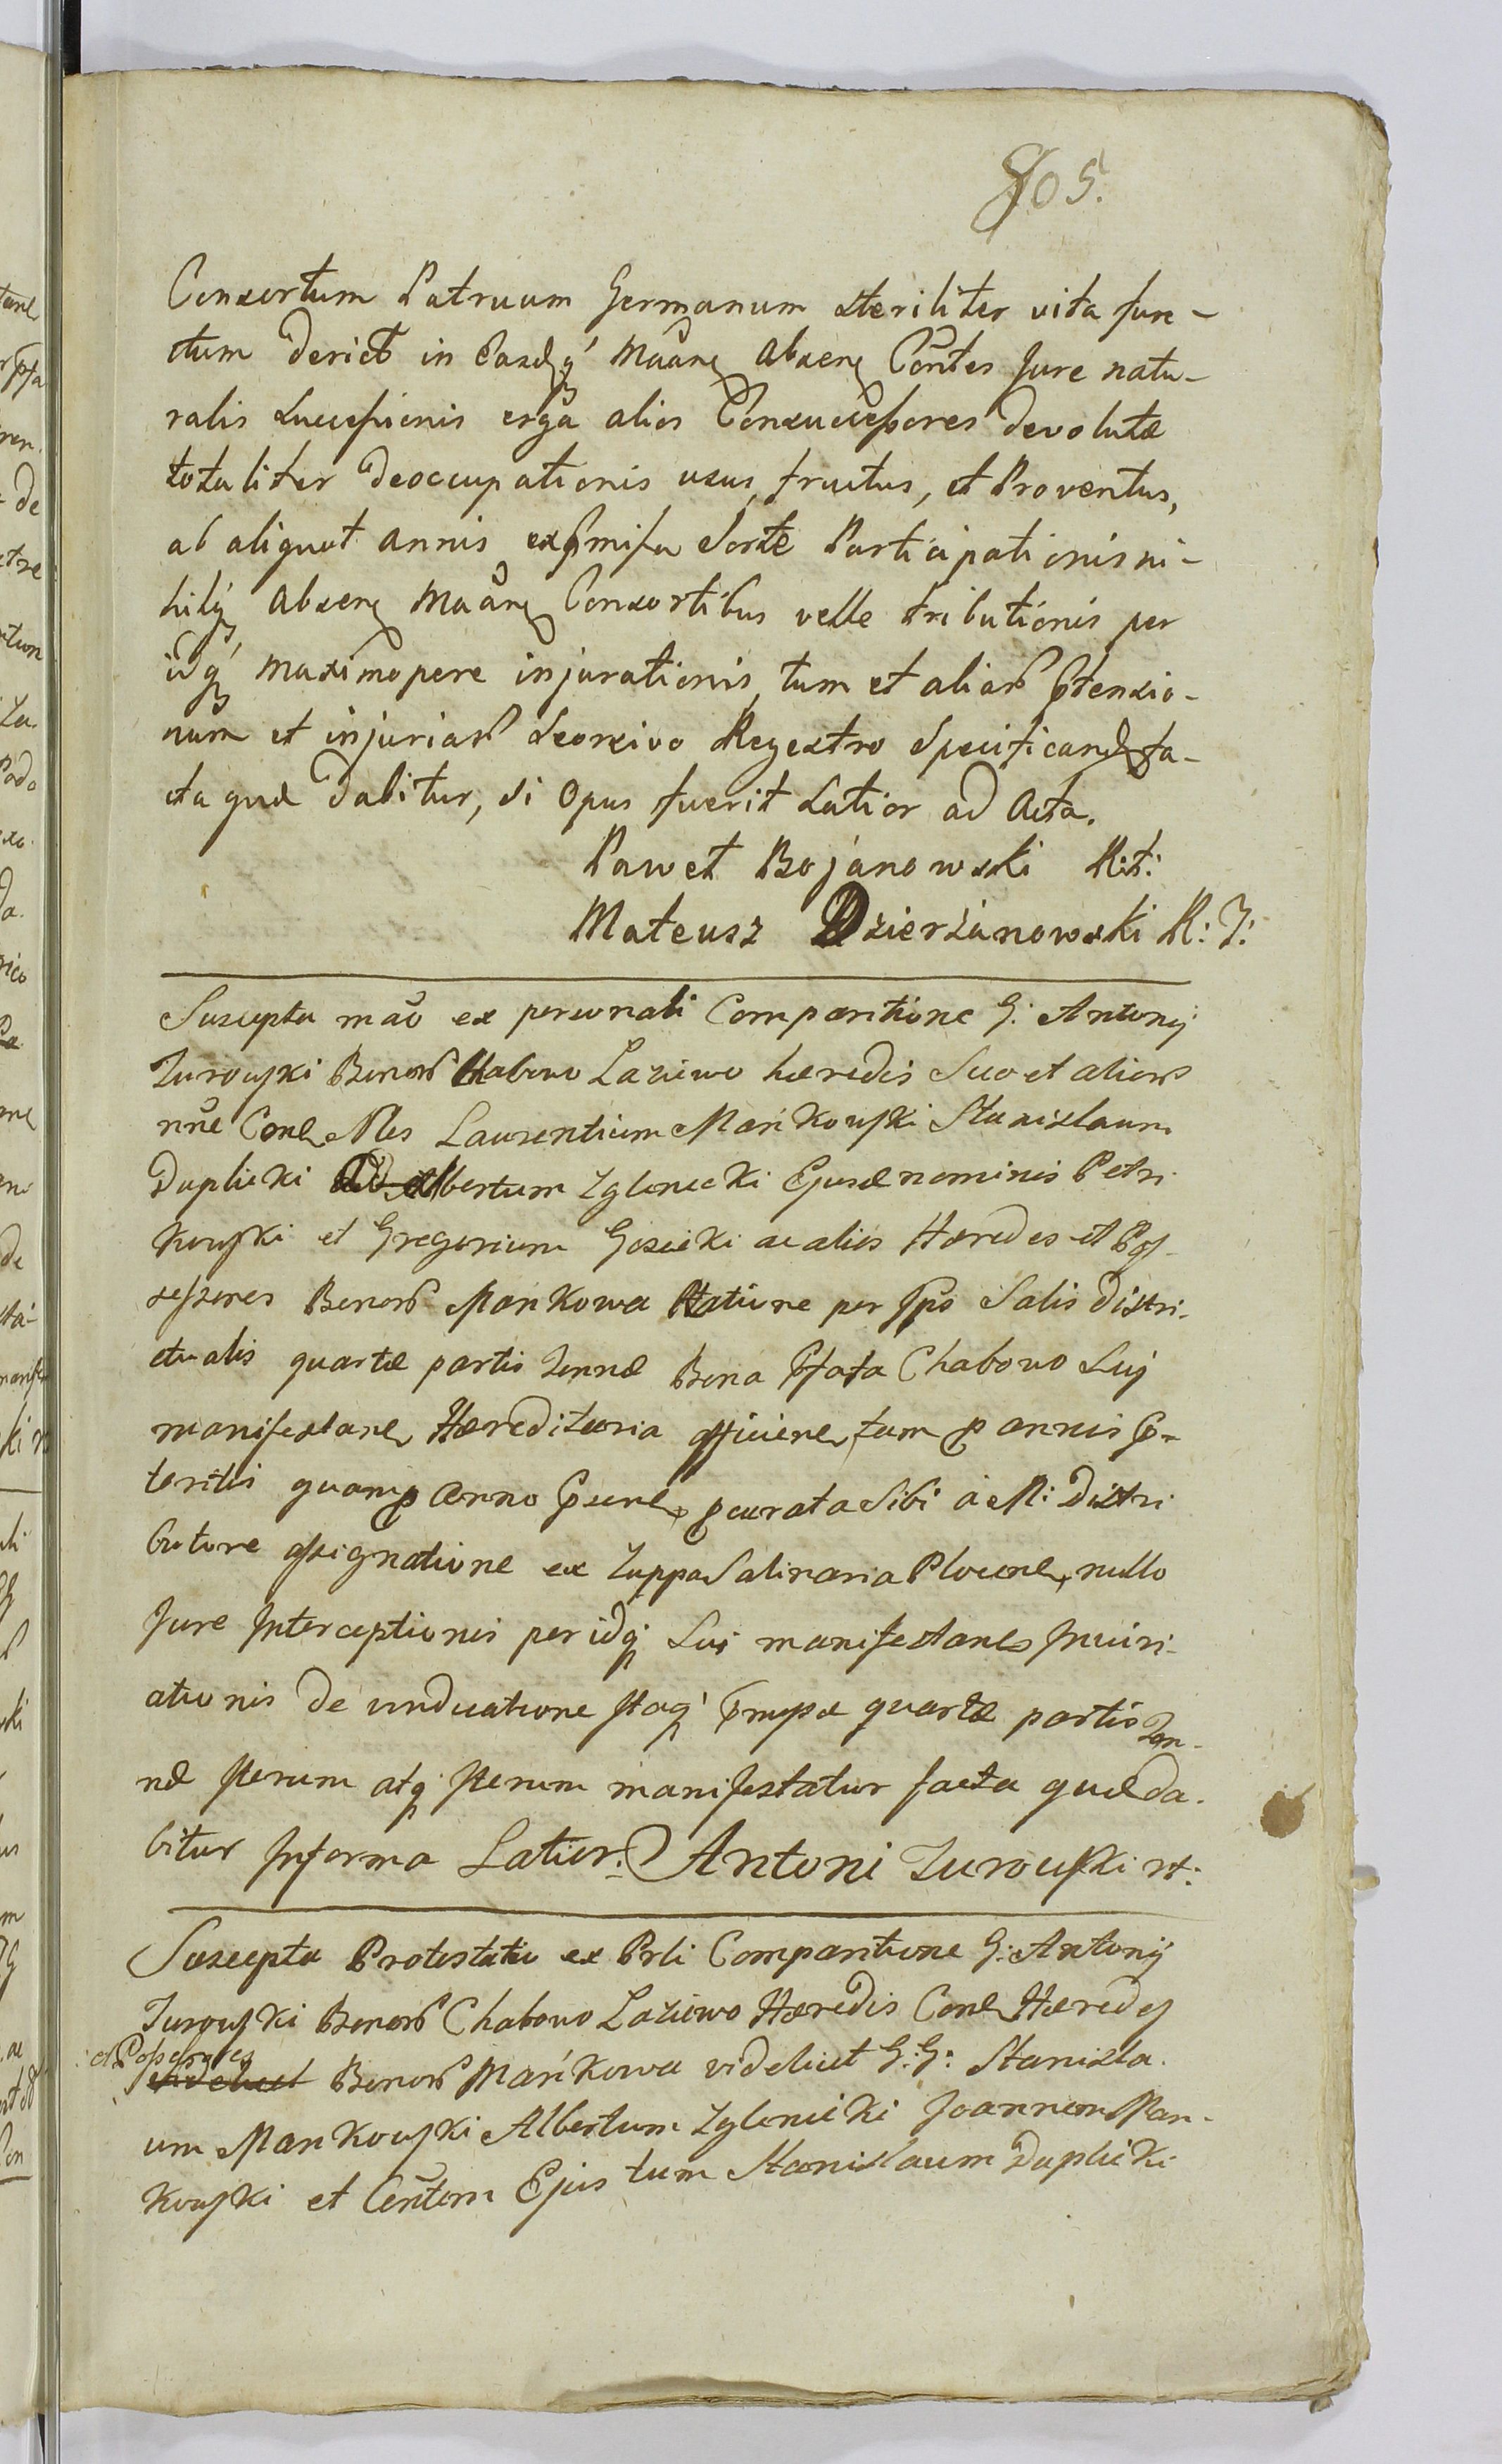 805.
Consortum Patruum Germanum steriliter vita fun-
ctum Derict in Easdq´ Mãane Absene Contes Jure natu-
ralis Successionis erga alios Consuccessores devolutæ
totaliter deoccupationis usus, fructus, et Proventus,
ab aliquot annis, expmissa Sorte Participationis ni-
hilq´ Absene Mãane Consortibus velle tributionis per
idq´ Maximopere injurationis, tum et aliar ptensio-
num et injuriar Seorsivo Regestro Specificand fa-
cta quæ Dabitur, si Opus fuerit Latior ad Acta.
Paweł Bojanowski R:t:
Mateusz Dzierżanowski R: J:
Suscepta mão ex personali Comparitione G: Antonij
Zurowski Bonor Chabowo Laziewo hæredis Suo et alior
nñe Cone Nles Laurentium Mańkowski Stanislaum
Duplicki Albertum Zglenicki Ejusd nominis Petri
kowski et Gregorium Gosicki ac alios Hæredes et Pos-
sessores Bonor Mańkowa Ratione per Jpõ Salis distri-
ctualis quartæ partis Tonnæ Bona Pfata Chabowo Suj
manifestane Hæreditaria afficiene tam p annis Præ-
teritis quam p anno Psene pcurata Sibi á M: Distri
butore assignatione ex Zuppa Salinaria Plocene, nullo
Jure Interceptionis per idq´ Sui manifestane Iniuri-
ationis De vindicatione Itaq´ Pmissæ quartæ partis Ton-
næ Iterum atq´ Iterum manifestatur facta quæ da-
bitur Informa Latior: Antoni Zurowski rt:
Suscepta Protestatio ex Prli Comparitione G: Antonij
Zurowski Bonor Chabowo Laziewo Hæredis Cone Hæredes
et Possessores
videlicet Bonor Mańkowa videlicet G:G: Stanisla-
um Mankowski Albertum Zglenicki Joannem Man-
kowski et Contem Ejus tum Stanislaum Duplicki